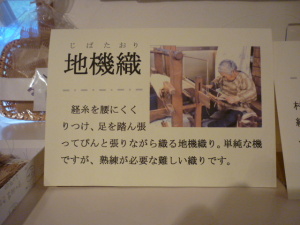 じばたおり
地機織
経糸を腰にくく
りつけ、足を踏ん張
ってぴんと張りながら織る地機織り。単純な機
ですが、熟練が必要な難しい織りです。